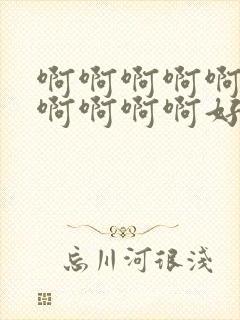 啊啊啊啊啊
啊啊啊啊好
忘川河很浅